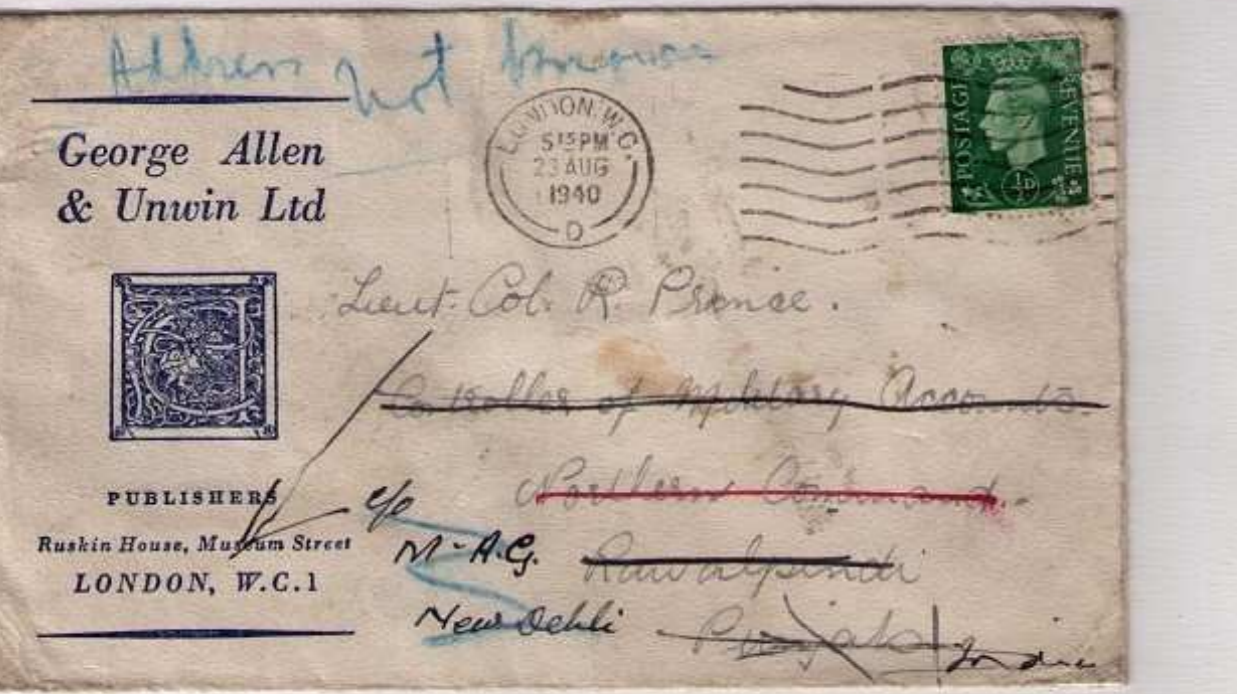 Address not known
George Allen
& Unwin Ltd
PUBLISHERS
Ruskin House, Museum Street
LONDON, W.C.1
LONDON. W.C.
5 15 PM
23 AUG
1940
D
POSTAGE REVENUE
½D
Lieut. Col. R. Prince.
Controller of Military Accounts.
Northern Command.
c/o
M.A.G. Rawalpindi
New Dehli Punjab India